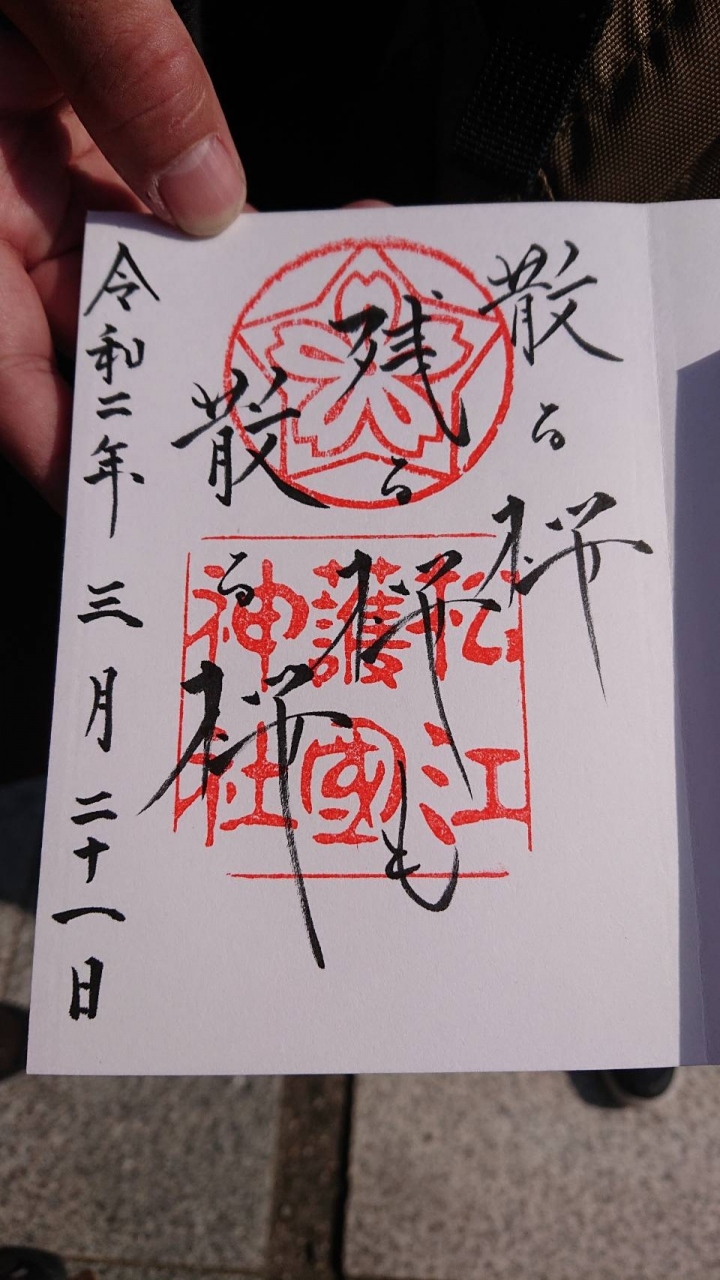 散る桜
残る桜も
散る桜
令和二年三月二十一日
松江
護國
神社